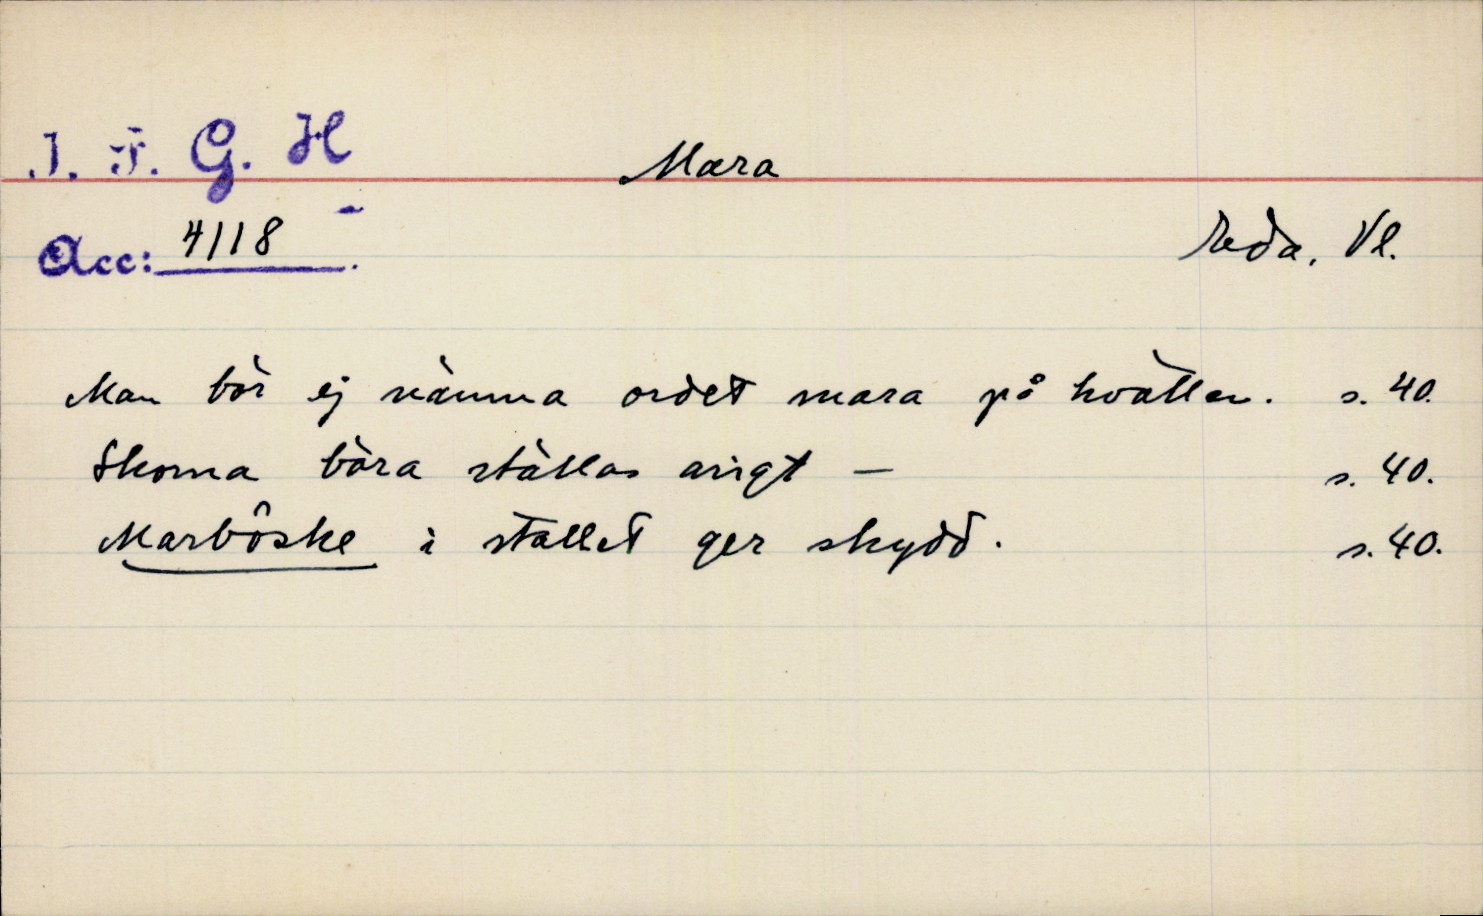 I. F. G. H
Mara
Acc: 4118
Reda, Vl.
Man bör ej nämna ordet mara på hvällen. s. 40.
Skorna böra ställas avigt — s. 40.
Marböske i stallet ger skydd. s. 40.